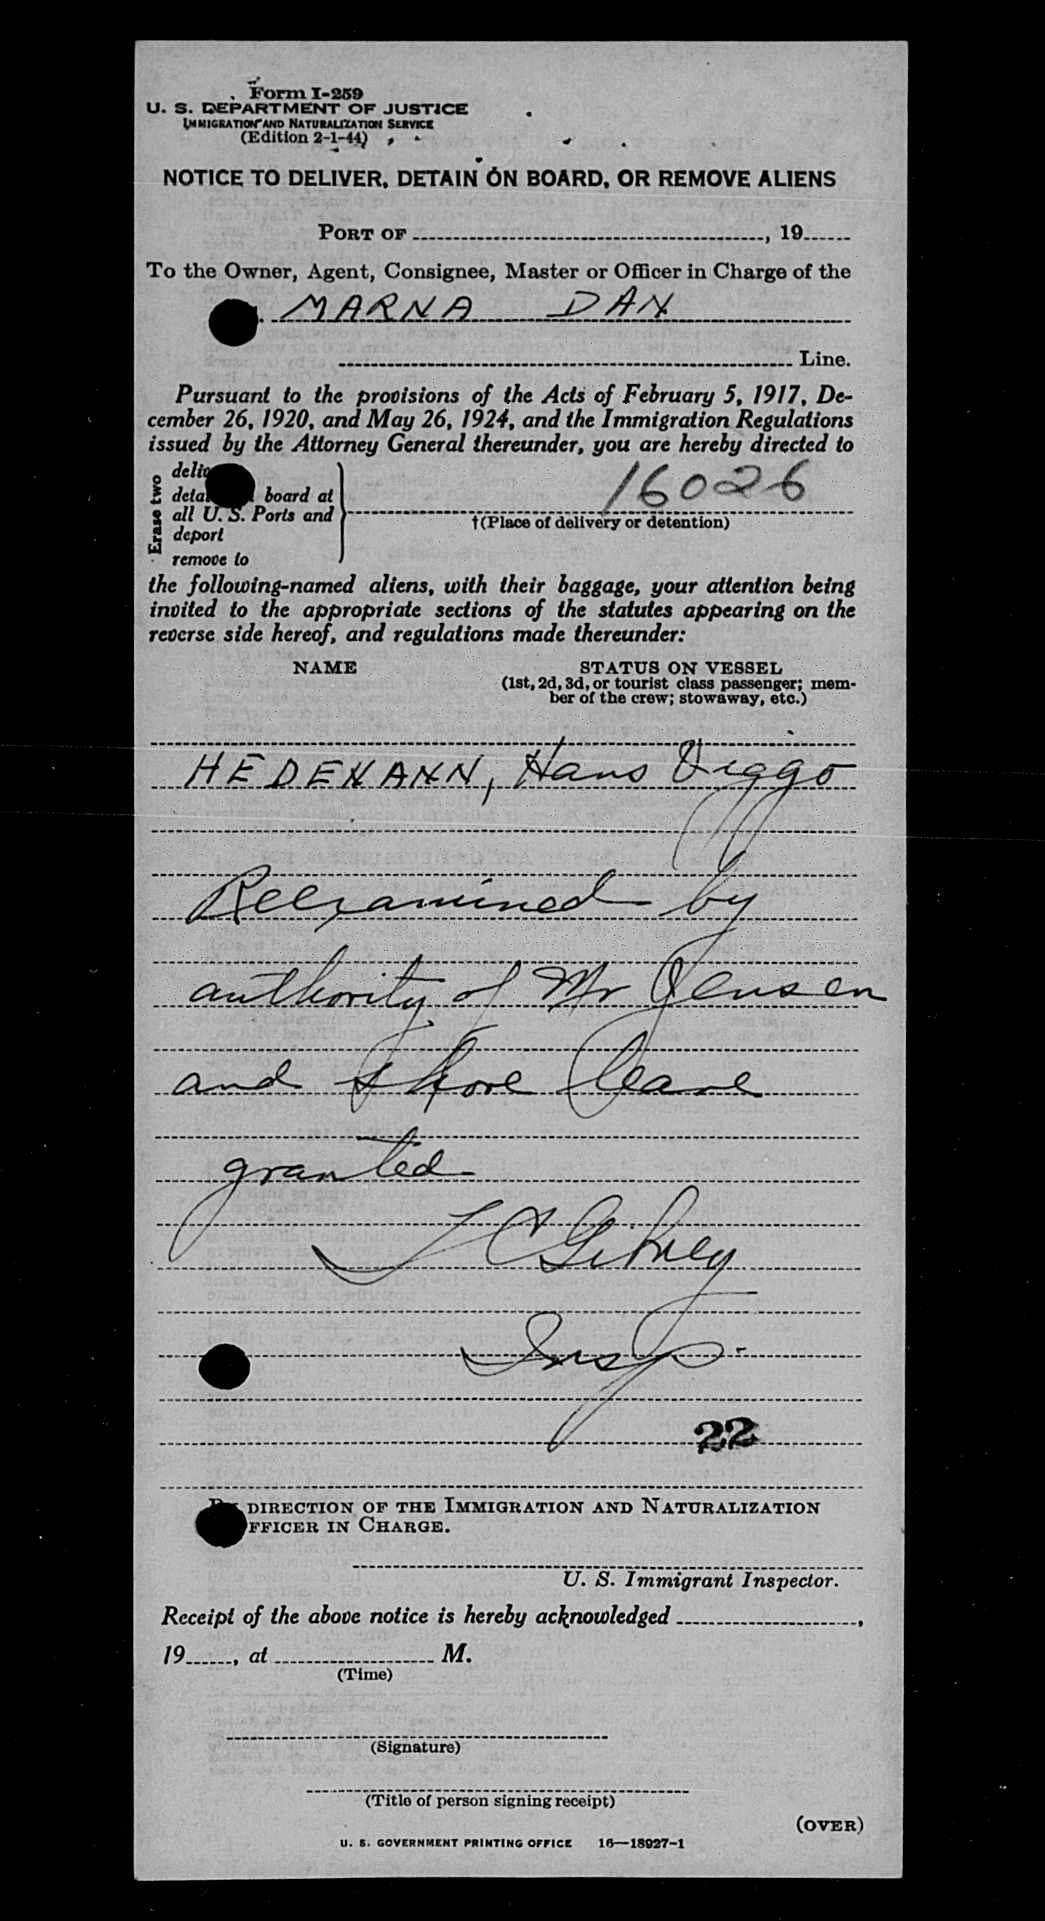 Form I-259
U. S. DEPARTMENT OF JUSTICE
IMMIGRATION AND NATURALIZATION SERVICE
(Edition 2-1-44)
NOTICE TO DELIVER, DETAIN ON BOARD, OR REMOVE ALIENS
PORT OF , 19
To the Owner, Agent, Consignee, Master or Officer in Charge of the
MARNA DAN
Line.
Pursuant to the provisions of the Acts of February 5, 1917, De-
cember 26, 1920, and May 26, 1924, and the Immigration Regulations
issued by the Attorney General thereunder, you are hereby directed to
Erase two
board at
all U. S. Ports and
deport
remove to
16026
†(Place of delivery or detention)
the following-named aliens, with their baggage, your attention being
invited to the appropriate sections of the statutes appearing on the
reverse side hereof, and regulations made thereunder:
NAME
STATUS ON VESSEL
(1st, 2d, 3d, or tourist class passenger; mem-
ber of the crew; stowaway, etc.)
HEDEMANN, Hans Viggo
Reexamined by
authority of Mr Jensen
and shore leave
granted
Insp.
22
DIRECTION OF THE IMMIGRATION AND NATURALIZATION
OFFICER IN CHARGE.
U. S. Immigrant Inspector.
Receipt of the above notice is hereby acknowledged ,
19 , at M.
(Time)
(Signature)
(Title of person signing receipt)
(OVER)
U. S. GOVERNMENT PRINTING OFFICE 16—18927-1